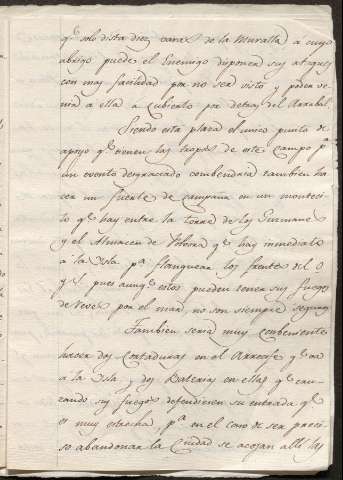 qe. solo dista diez varas de la Muralla a cuyo
abrigo puede el Enemigo disponer sus ataques
con mas facilidad por no ser visto y poder ve
nir a ella a Cubierto por detras del Arrabal.
Siendo esta plaza el unico punto de
apoyo qe. tienen las tropas de este Campo pa.
un evento desgraciado combendria tambien ha
cer un fuerte de campaña en un monteci
to qe. hay entre la torre de los Hermanos
y el Almacen de Polvora qe. hay inmediato
à la Isla pa. flanquear los frentes del O
y pues aunqe. estos pueden tener sus fuegos
de Reves por el mar, no son siempre seguros
Tambien seria muy conbeniente
hacer dos Cortaduras en el Arrecife qe. va
à la Isla y dos Baterias en ellas qe. cru
zando sus fuegos defendiesen su entrada qe.
es muy estrecha, pa. en el caso de ser preci
so abandonar la Ciudad se acojan alli las